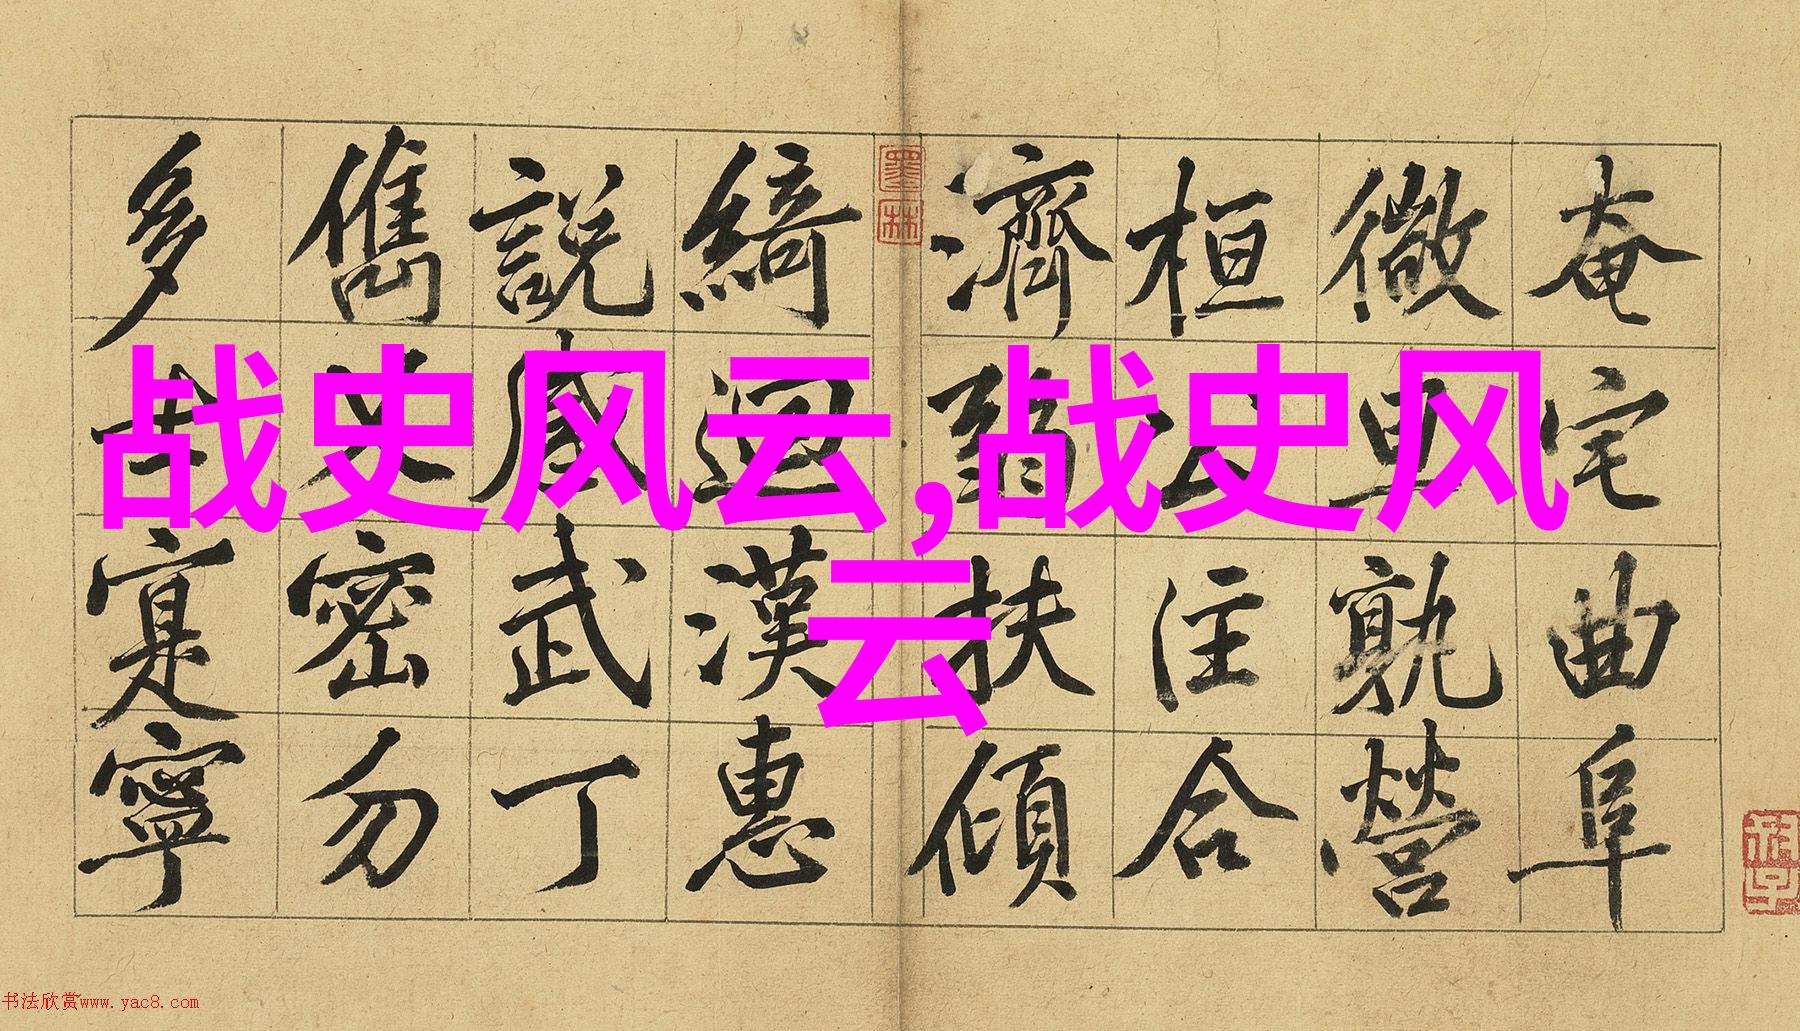 战史风云,战史风
云
奄宅曲阜
微旦孰營
桓公合
濟弱扶傾
綺迴漢惠
説感武丁
儁乂密勿
多士寔寧
墨林
书法欣赏www.yac8.com